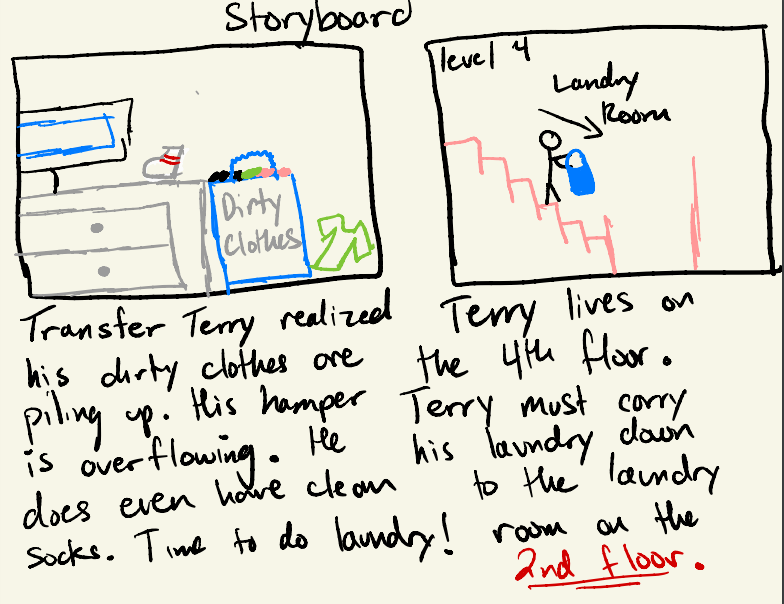 Storyboard
Dirty
Clothes
Transfer Terry realized
his dirty clothes are
piling up. His hamper
is overflowing. He
does even have clean
socks. Time to do laundry!
level 4
Landry
Room
Terry lives on
the 4th floor.
Terry must carry
his laundry down
to the laundry
room on the
2nd floor.